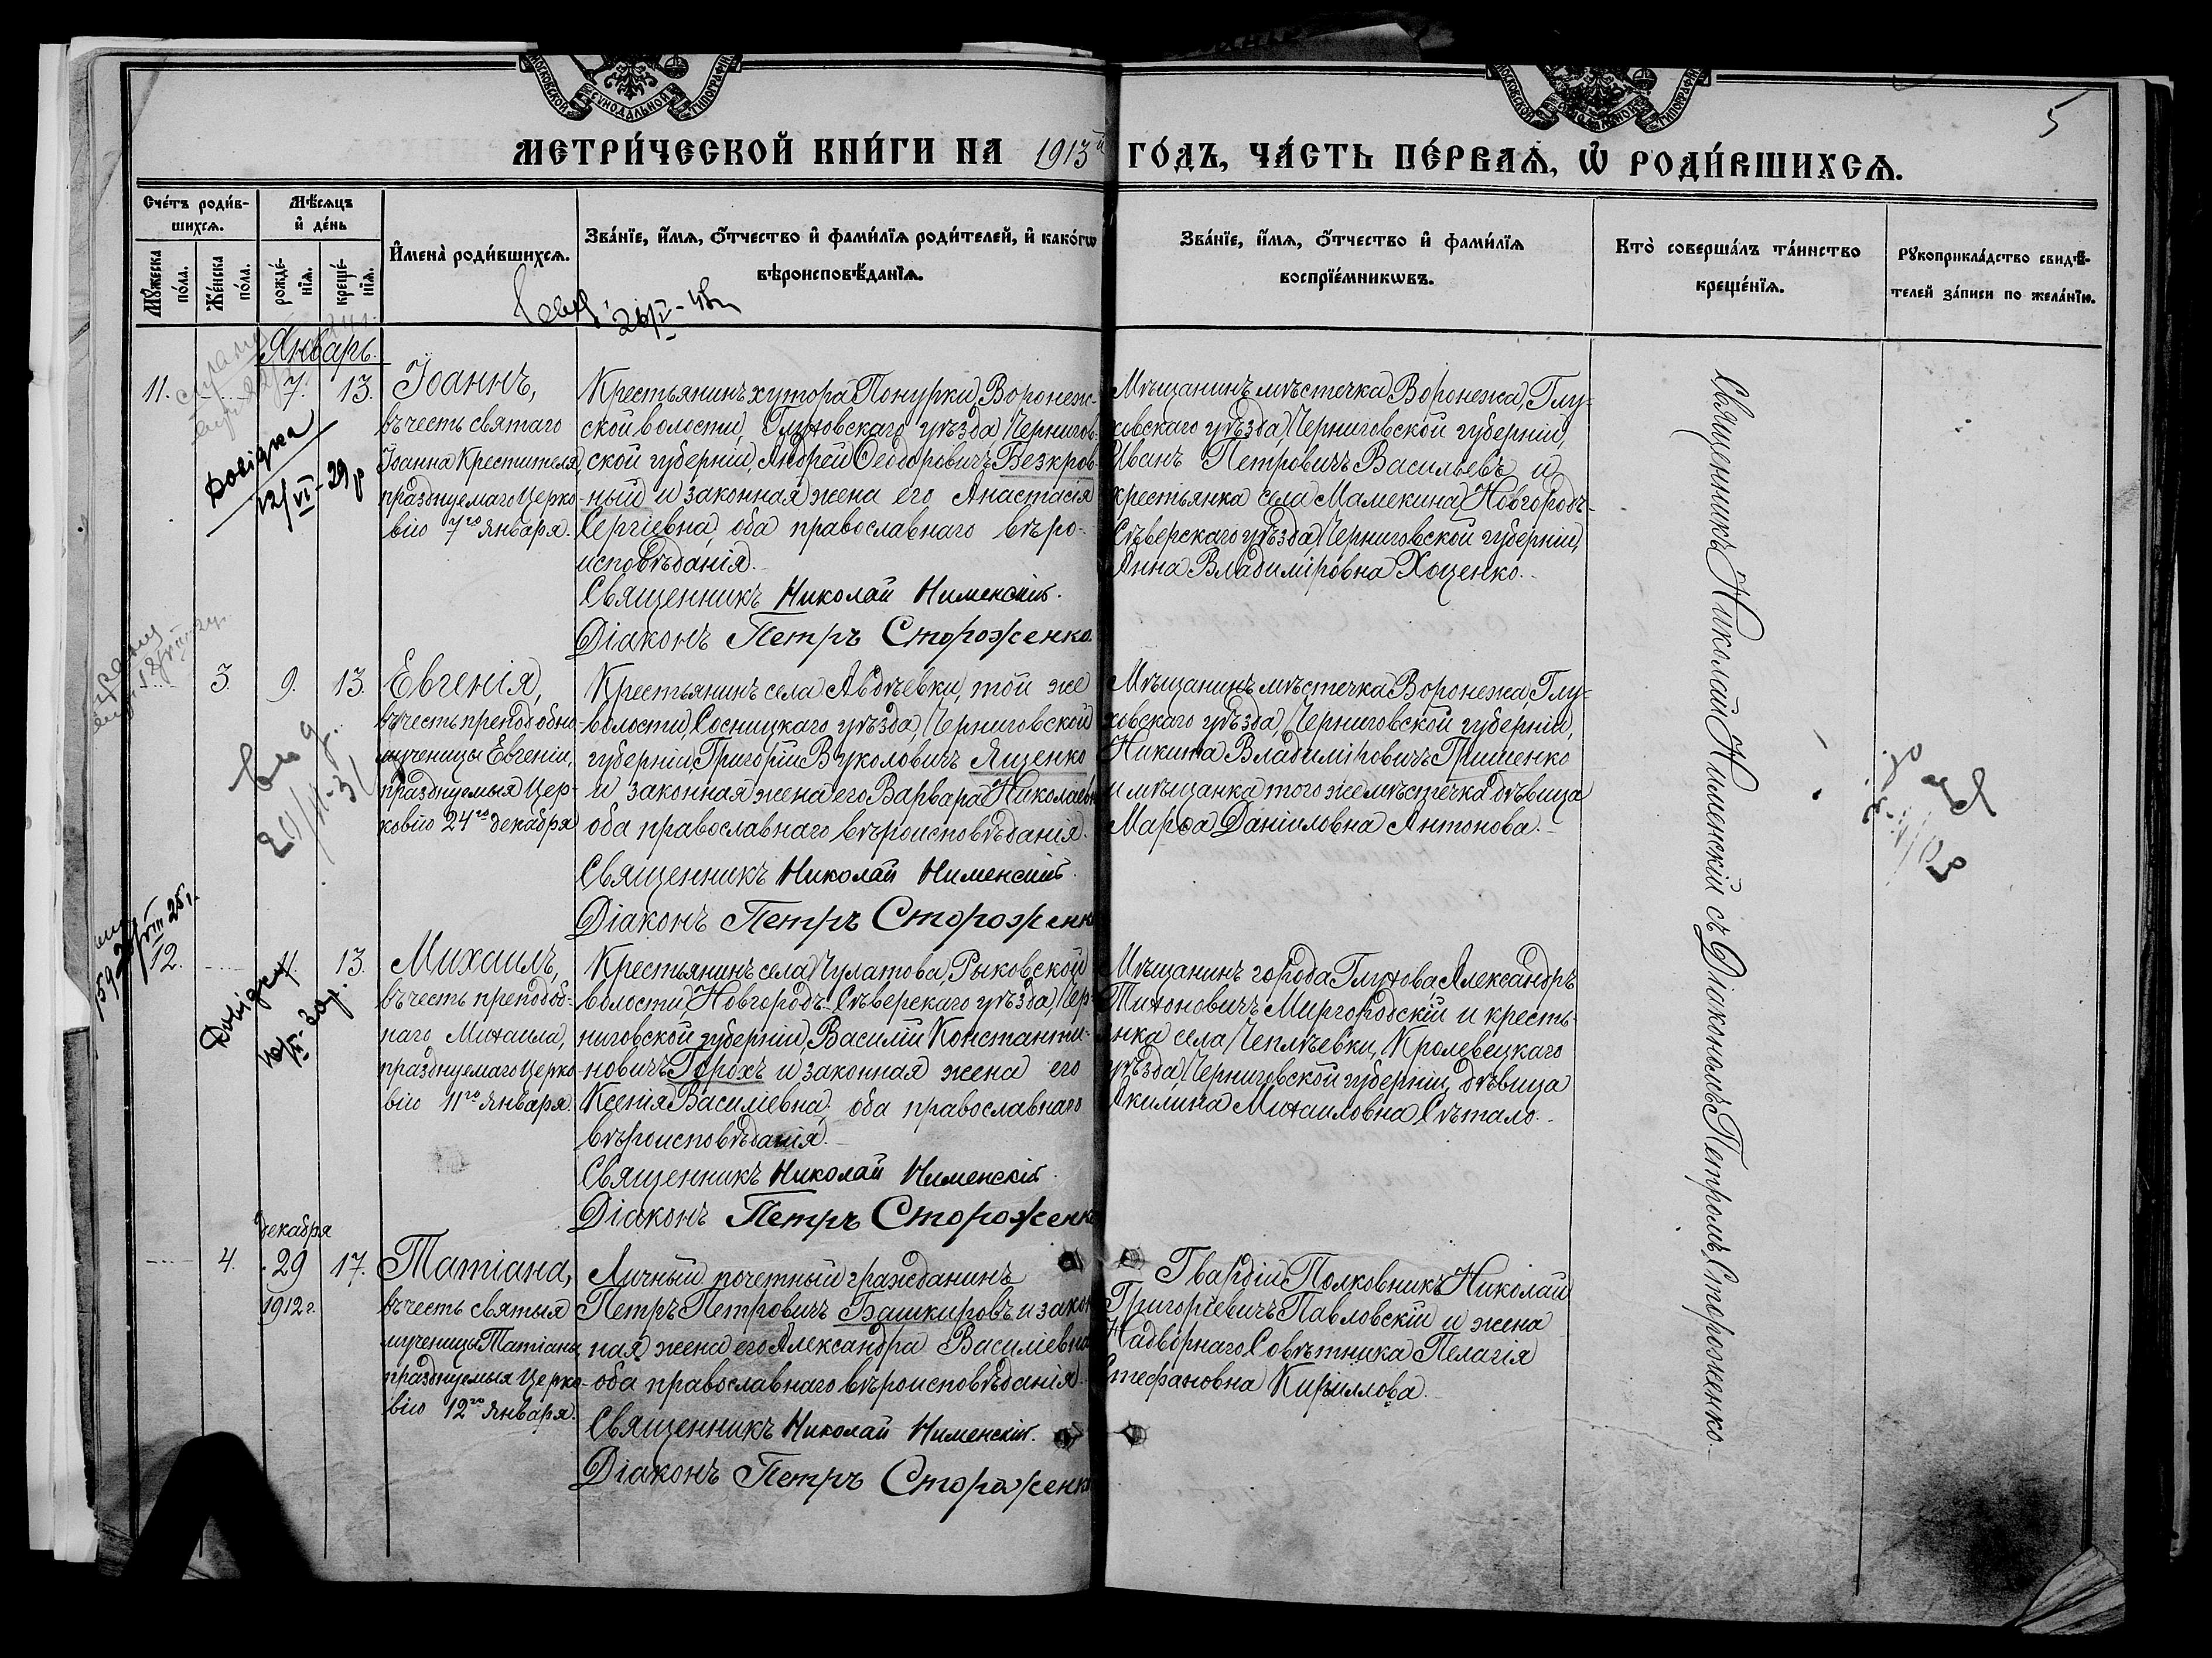 МОСКОВСКОЙ СѴНОДАЛЬНОЙ ТИПОГРАФІИ
МОСКОВСКОЙ СѴНОДАЛЬНОЙ ТИПОГРАФІИ
5
МЕТРИ́ЧЕСКОЙ КНИ́ГИ НА 1913й ГО́ДЪ, ЧА́СТЬ ПЕ́РВАѦ, Ѡ҆ РОДИ́ВШИХСѦ.
Сче́тъ роди́в-
шихсѧ.
Мꙋ́жеска по́ла.
Же́нска по́ла.
Мѣ́сѧцъ
и҆ де́нь
рожде́-
нїѧ.
креще́-
нїѧ.
И҆мена̀ роди́вшихсѧ.
Зва́нїе, и҆́мѧ, ѻ҆́тчество и҆ фами́лїѧ роди́телей, и҆ како́гѡ
вѣроисповѣ́данїѧ.
Зва́нїе, и҆́мѧ, ѻ҆́тчество и҆ фами́лїѧ
воспрїе́мникѡвъ.
Кто̀ соверша́лъ та́инство
креще́нїѧ.
Рꙋкоприкла́дство свидѣ́-
телей за́писи по жела́нїю.
Январь.
11.
7.
13.
Довідка
12/VI-29р
Іоаннъ,
въ честь святаго
Іоанна Крестителя,
празднуемаго Церко-
вію 7го января.
Крестьянинъ хутора Понурки, Воронеж-
ской волости, Глуховскаго уѣзда, Чернигов-
ской губерніи, Андрей Ѳеодоровичъ Безкров-
ный и законная жена его Анастасія
Сергіевна, оба православнаго вѣро-
исповѣданія.
Священникъ Николай Нименскій.
Діаконъ Петръ Стороженко.
Мѣщанинъ мѣстечка Воронежа, Глу-
ховскаго уѣзда, Черниговской губерніи,
Иванъ Петровичъ Васильевъ и
крестьянка села Мамекина, Новгородъ-
Сѣверскаго уѣзда, Черниговской губерніи,
Анна Владиміровна Хоценко.
Священникъ Николай Нименскій съ Діакономъ Петромъ Стороженко
3.
9.
13.
Евгенія,
въ честь преподобно-
мученицы Евгеніи,
празднуемыя Цер-
ковію 24го декабря
Крестьянинъ села Авдѣевки, той же
волости, Сосницкаго уѣзда, Черниговской
губерніи, Григорій Вуколовичъ Ященко
и законная жена его Варвара Николаевна
оба православнаго вѣроисповѣданія.
Священникъ Николай Нименскій.
Діаконъ Петръ Стороженко
Мѣщанинъ мѣстечка Воронежа, Глу-
ховскаго уѣзда, Черниговской губерніи,
Никита Владиміровичъ Гришенко
и мѣщанка того же мѣстечка дѣвица
Марѳа Даніиловна Антонова.
12.
11.
13.
Михаилъ,
въ честь преподоб-
наго Михаила,
празднуемаго Церко-
вію 11го января.
Крестьянинъ села Чулатова, Рыковской
волости, Новгородъ-Сѣверскаго уѣзда, Чер-
ниговской губерніи, Василій Константи-
новичъ Горохъ и законная жена его
Ксенія Василіевна, оба православнаго
вѣроисповѣданія.
Священникъ Николай Нименскій.
Діаконъ Петръ Стороженко
Мѣщанинъ города Глухова Александръ
Тихоновичъ Миргородскій и кресть-
янка села Чеплѣевки, Кролевецкаго
уѣзда, Черниговской губерніи, дѣвица
Акилина Михаиловна Сѣтало.
декабря
4.
29
1912 г.
17.
Татіана,
въ честь святыя
мученицы Татіаны,
празднуемыя Церко-
вію 12го января.
Личный почетный гражданинъ
Петръ Петровичъ Башкировъ и закон-
ная жена его Александра Василіевна
оба православнаго вѣроисповѣданія.
Священникъ Николай Нименскій.
Діаконъ Петръ Стороженко
Гвардіи Полковникъ Николай
Григоріевичъ Павловскій и жена
Надворнаго Совѣтника Пелагія
Стефановна Кириллова.